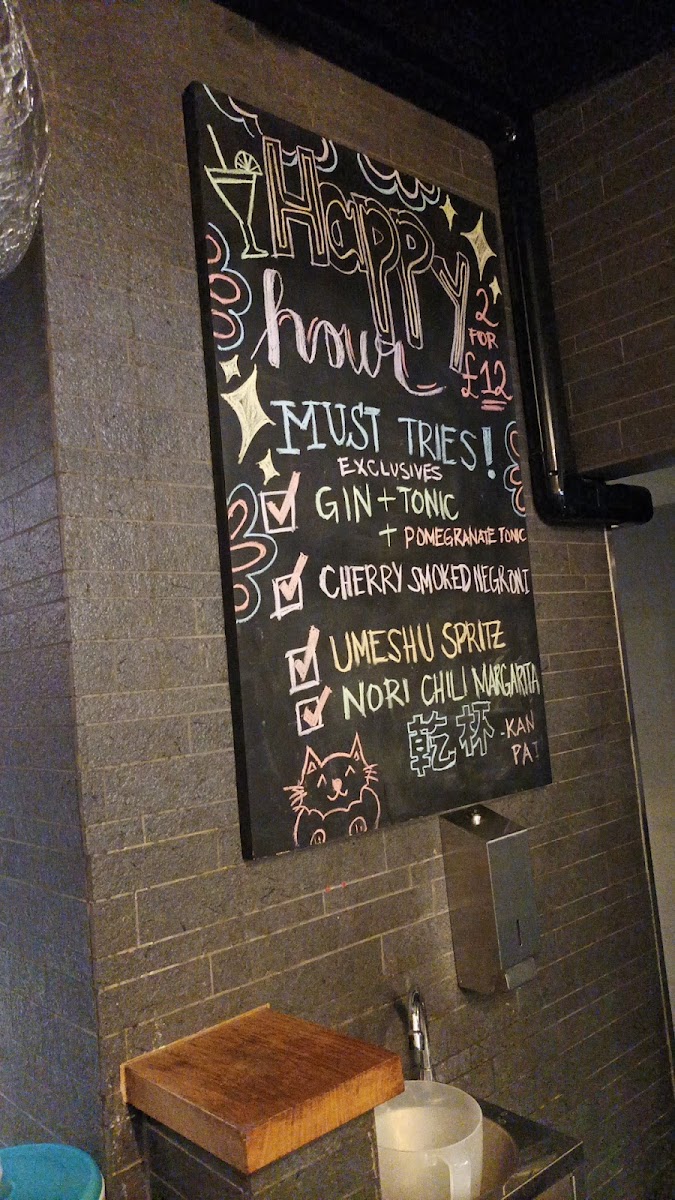 Happy
hour
2
FOR
£12
MUST TRIES!
EXCLUSIVES
GIN + TONIC
+ POMEGRANATE TONIC
CHERRY SMOKED NEGRONI
UMESHU SPRITZ
NORI CHILI MARGARITA
乾杯 -KAN
PAI